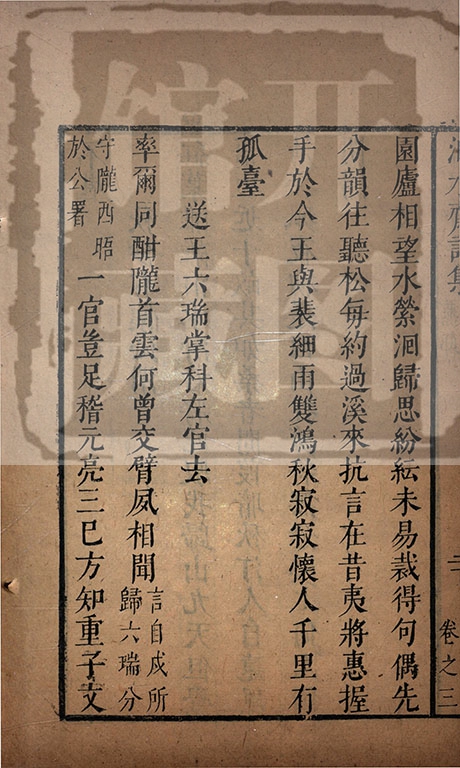 園廬相望水縈洄歸思紛紜未易裁得句偶先
分韻往聽松每約過溪來抗言在昔夷將惠握
手於今王與裴細雨雙鴻秋寂寂懷人千里有
孤臺
送王六瑞掌科左官去
率爾同酣隴首雲何曾交臂夙相聞言自成所
歸六瑞分
守隴西晤
於公署一官豈足稽元亮三巳方知重子文
卷之三